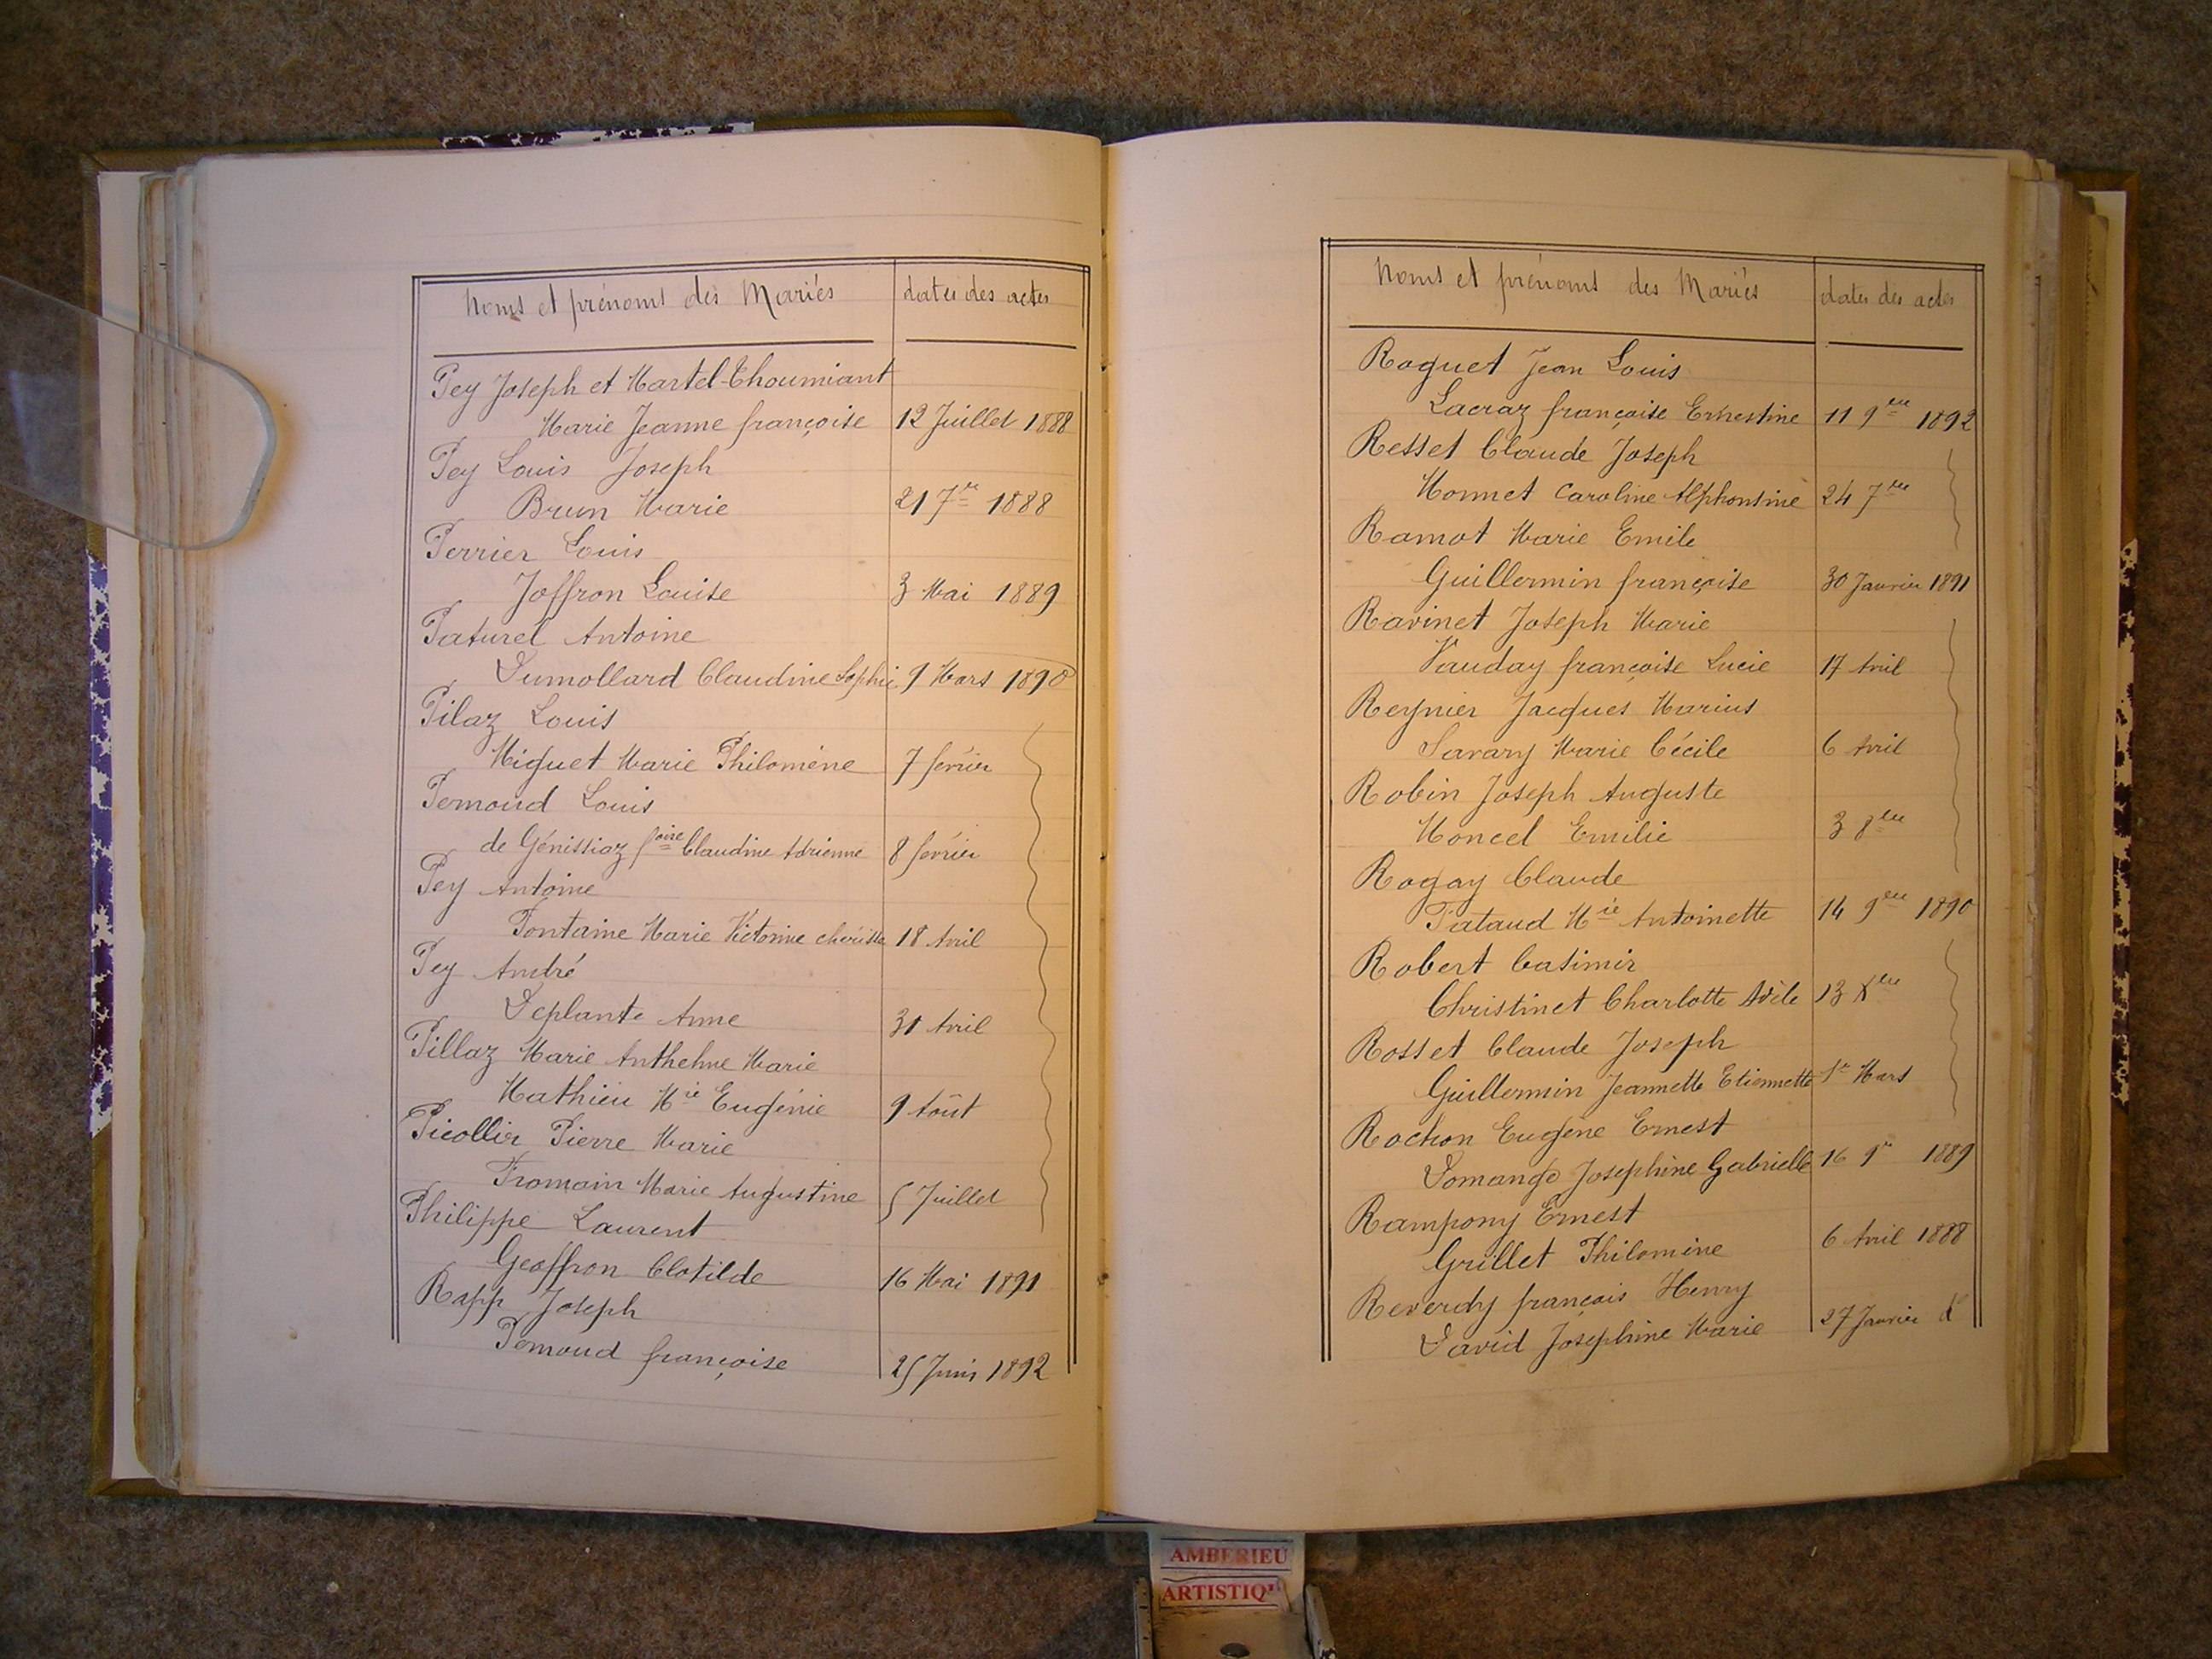 Noms et prénoms des Mariés dates des actes
Pey Joseph et Martel-Thoumiant
Marie Jeanne françoise 12 Juillet 1888
Pey Louis Joseph
Brun Marie 21 7re 1888
Perrier Louis
Joffron Louise 3 Mai 1889
Paturel Antoine
Dumollard Claudine Sophie 9 Mars 1890
Pilaz Louis
Miguet Marie Philomène 7 février
Pernoud Louis
de Génissiaz foise Claudine Adrienne 8 février
Pey Antoine
Fontaine Marie Victorine 18 Avril
Pey André
Deplante Anne 31 Avril
Pillaz Marie Anthelme Marie
Mathieu Mie Eugénie 9 Août
Picollier Pierre Marie
Fromain Marie Augustine 5 Juillet
Philippe Laurent
Geoffron Clotilde 16 Mai 1891
Rapp Joseph
Pernoud françoise 25 Juin 1892
Noms et prénoms des Mariés dates des actes
Roguet Jean Louis
Lacraz françoise Ernestine 11 9bre 1892
Resset Claude Joseph
Monnet Caroline Alphonsine 24 7bre
Ramot Marie Emile
Guillermin françoise 30 Janvier 1891
Ravinet Joseph Marie
Vauday françoise Lucie 17 Avril
Reynier Jacques Marius
Savary Marie Cécile 6 Avril
Robin Joseph Auguste
Moncel Emilie 3 8bre
Rogay Claude
Pataud Mie Antoinette 14 9bre 1890
Robert Casimir
Christinet Charlotte Adèle 13 Xbre
Rosset Claude Joseph
Guillermin Jeannette Etiennette 1er Mars
Rochon Eugène Ernest
Domange Josephine Gabrielle 16 9re 1889
Rampony Ernest
Grillet Philomine 6 Avril 1888
Reverdy françois Henry
David Josephine Marie 27 Janvier do
AMBERIEU
ARTISTIQ